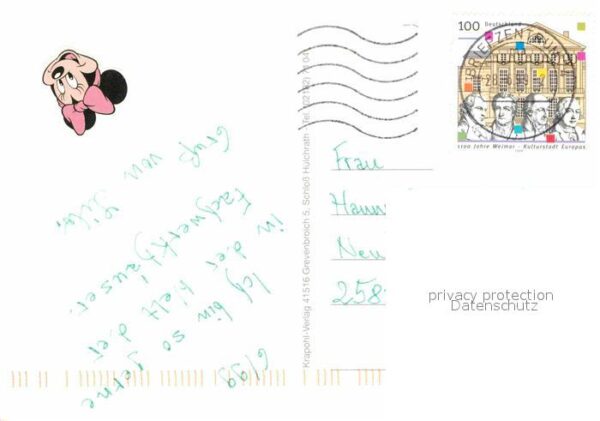 6/99
Ich bin so gerne
in der Welt der
Fachwerkhäuser.
Gruß von
Krapohl-Verlag 41516 Grevenbroich 5, Schloß Hülchrath
Frau
Hann
Neu
258
100 Deutschland
BRIEFZENTRUM
1100 Jahre Weimar - Kulturstadt Europas
privacy protection
Datenschutz